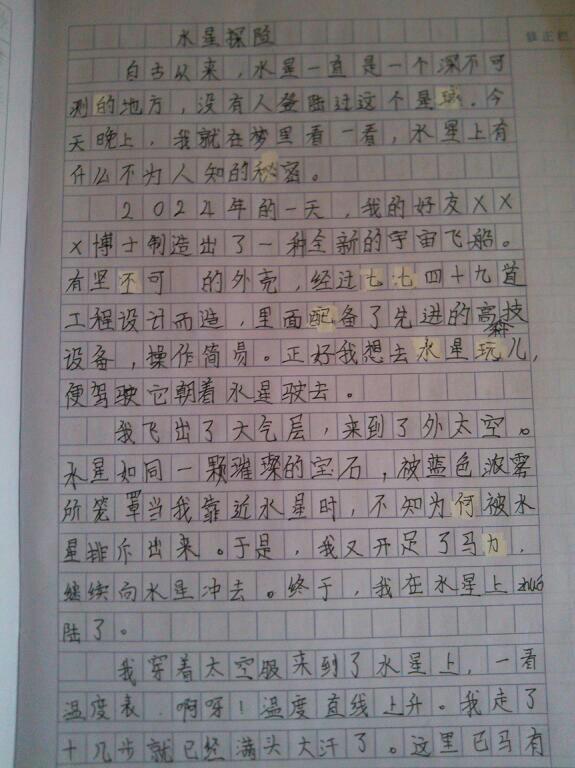 水星探险
自古以来，水星一直是一个深不可
测的地方，没有人登陆过这个星球。今
天晚上，我就在梦里看一看，水星上有
什么不为人知的秘密。
2024年的一天，我的好友XX
X博士制造出了一种全新的宇宙飞船。
有坚不可 的外壳，经过七七四十九首
工程设计而造，里面配备了先进的高科技
设备，操作简易。正好我想去水星玩儿，
便驾驶它朝着水星驶去。
我飞出了大气层，来到了外太空。
水星如同一颗璀璨的宝石，被蓝色浓雾
所笼罩当我靠近水星时，不知为何被水
星排斥出来。于是，我又开足了马力，
继续向水星冲去。终于，我在水星上zhuó
陆了。
我穿着太空服来到了水星上，一看
温度表．啊呀！温度直线上升。我走了
十几步就已经满头大汗了。这里已马有